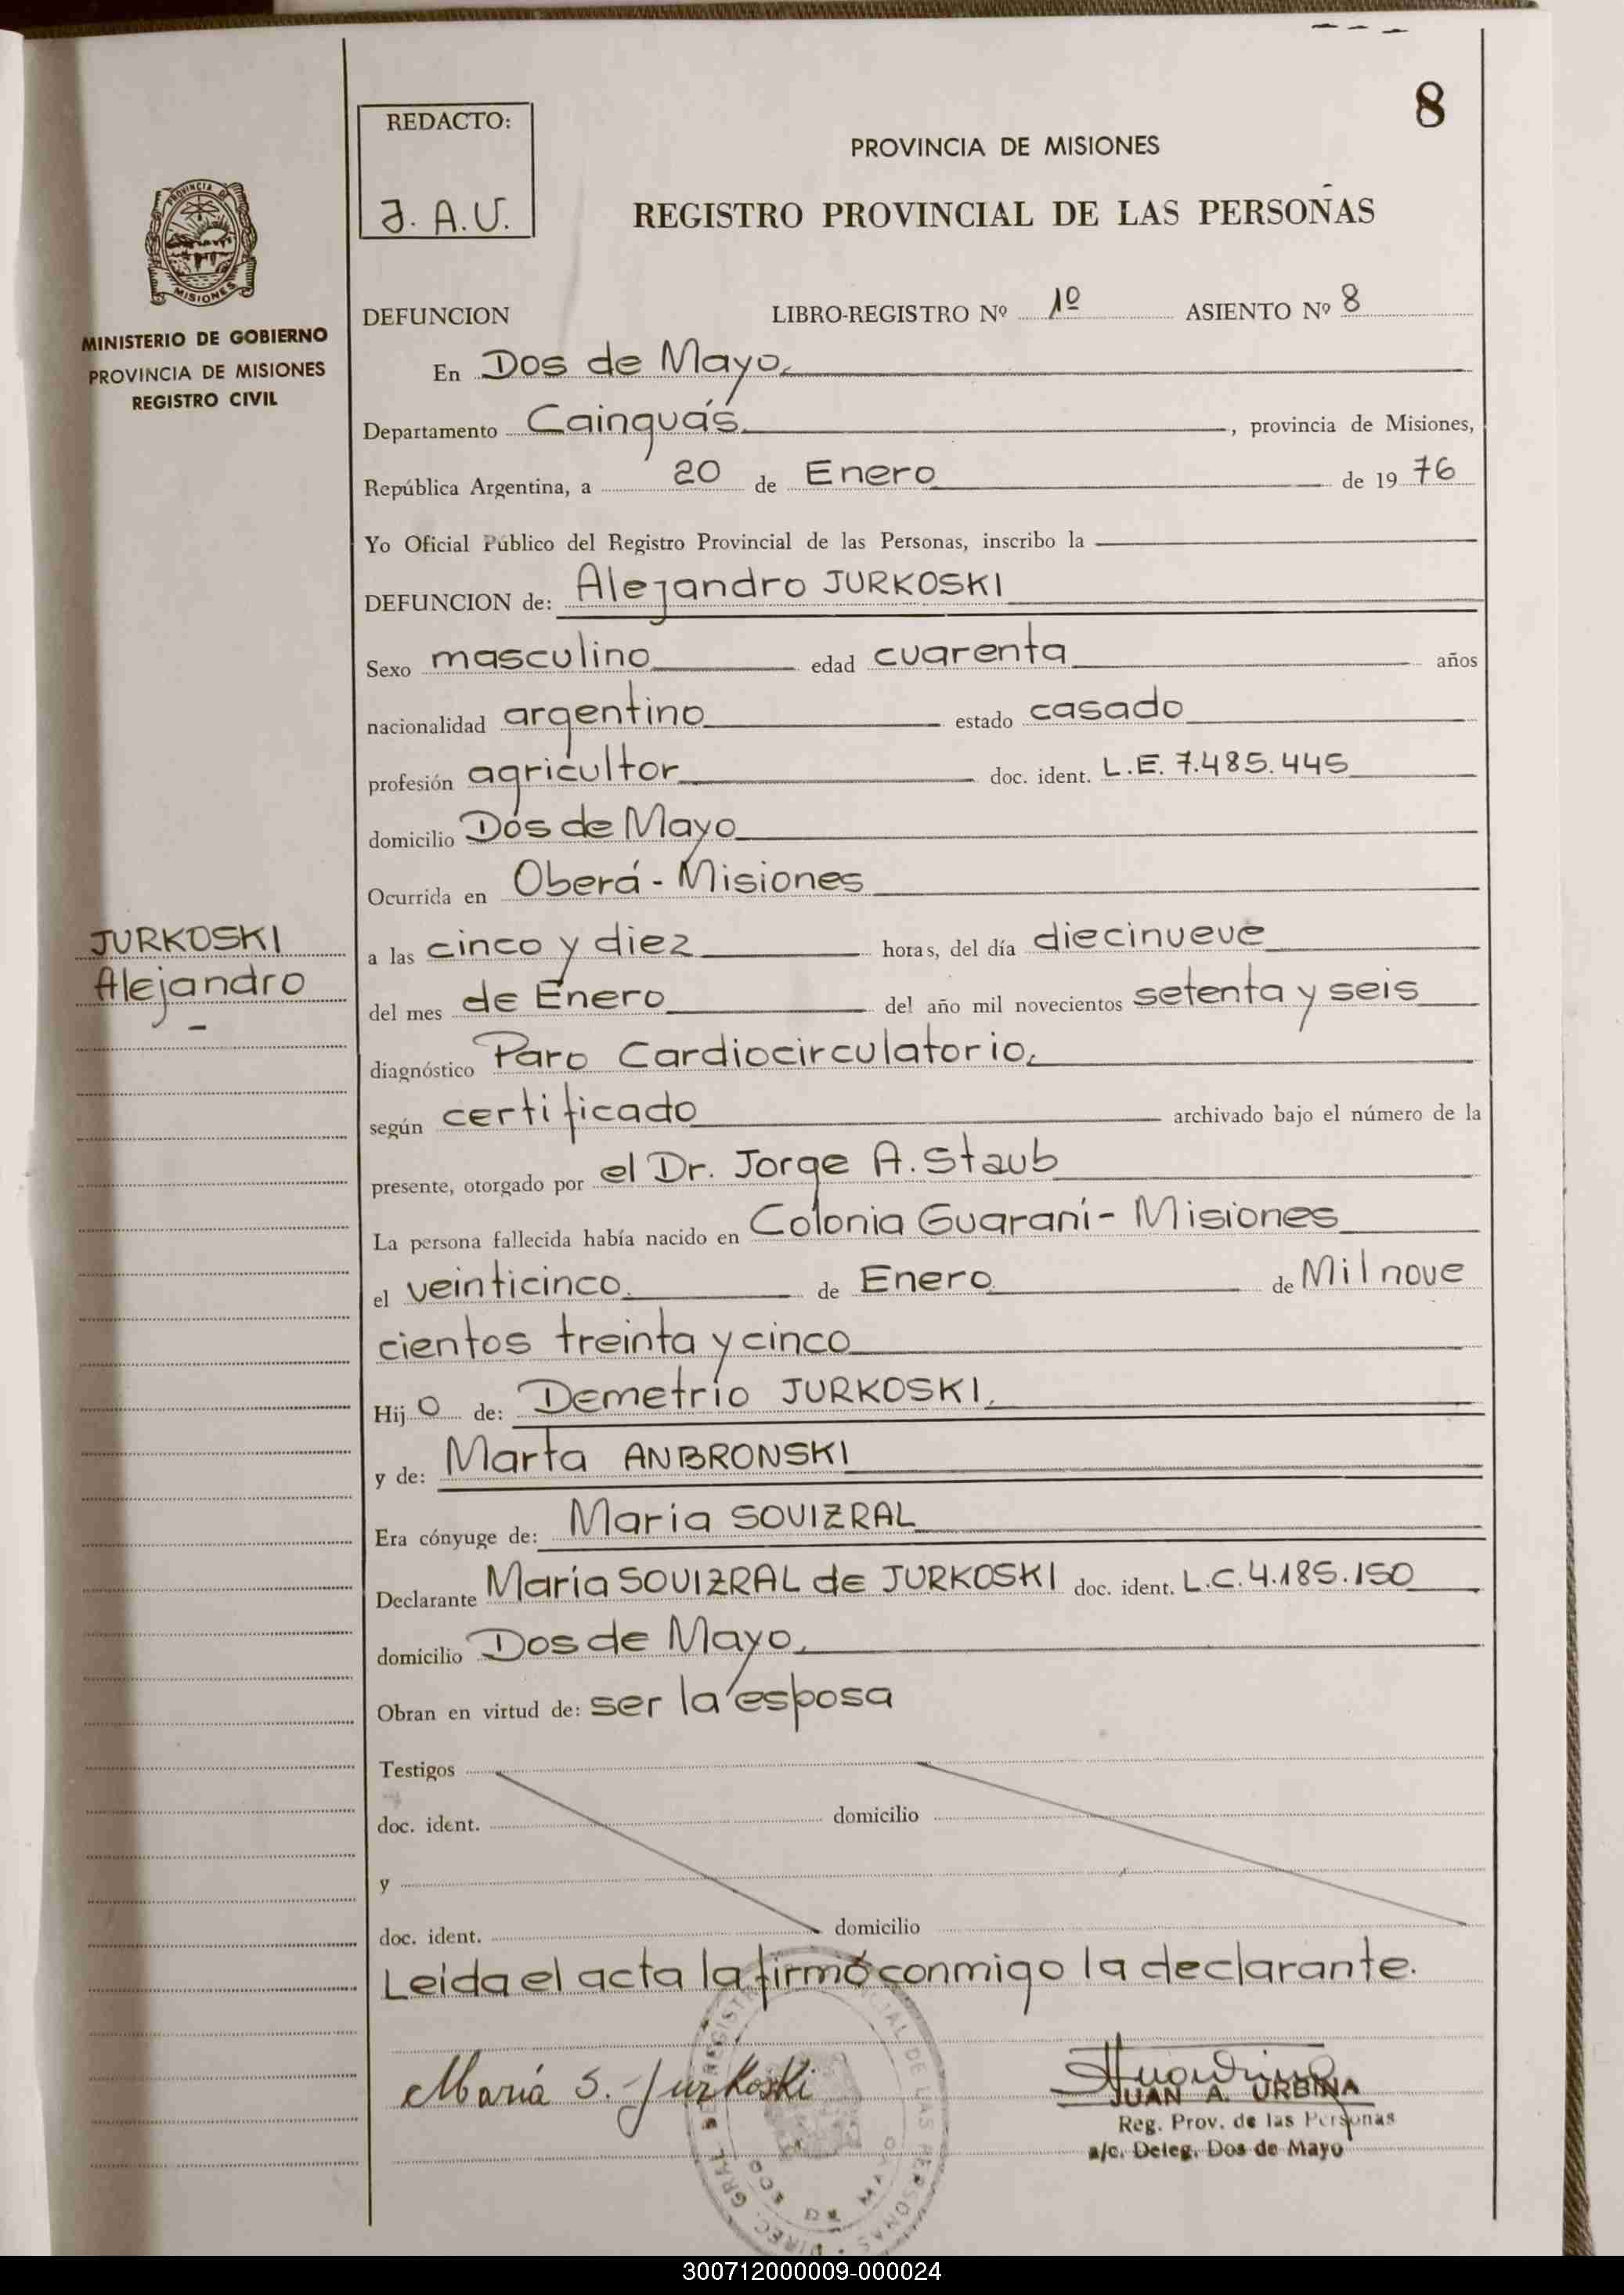 8
REDACTO:
J. A. U.
PROVINCIA DE MISIONES
REGISTRO PROVINCIAL DE LAS PERSONAS
PROVINCIA DE
MISIONES
MINISTERIO DE GOBIERNO
PROVINCIA DE MISIONES
REGISTRO CIVIL
DEFUNCION LIBRO-REGISTRO Nº 1º ASIENTO Nº 8
En Dos de Mayo.
Departamento Cainguás , provincia de Misiones,
República Argentina, a 20 de Enero de 19 76
Yo Oficial Público del Registro Provincial de las Personas, inscribo la
DEFUNCION de: Alejandro JURKOSKI
Sexo masculino edad cuarenta años
nacionalidad argentino estado casado
profesión agricultor doc. ident. L.E. 7.485.445
domicilio Dos de Mayo
Ocurrida en Oberá - Misiones
JURKOSKI
Alejandro
a las cinco y diez horas, del día diecinueve
del mes de Enero del año mil novecientos setenta y seis
diagnóstico Paro Cardiocirculatorio.
según certificado archivado bajo el número de la
presente, otorgado por el Dr. Jorge A. Staub
La persona fallecida había nacido en Colonia Guaraní - Misiones
el veinticinco. de Enero de Mil nove
cientos treinta y cinco
Hij o de: Demetrio JURKOSKI.
y de: Marta ANBRONSKI
Era cónyuge de: Maria SOUIZRAL
Declarante María SOUIZRAL de JURKOSKI doc. ident. L.C. 4.185.150
domicilio Dos de Mayo.
Obran en virtud de: ser la esposa
Testigos
doc. ident. domicilio
y
doc. ident. domicilio
Leída el acta la firmó conmigo la declarante.
María S. Jurkoski
JUAN A. URBINA
Reg. Prov. de las Personas
a/c. Deleg. Dos de Mayo
300712000009-000024